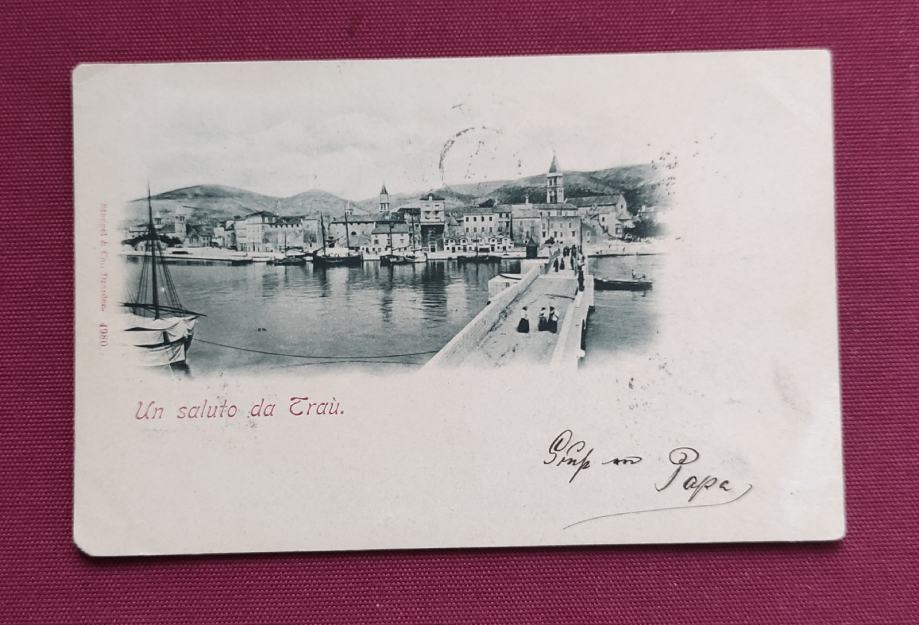 Stengel & Co., Dresden. 4980
Un saluto da Traù.
Gruß von
Papa